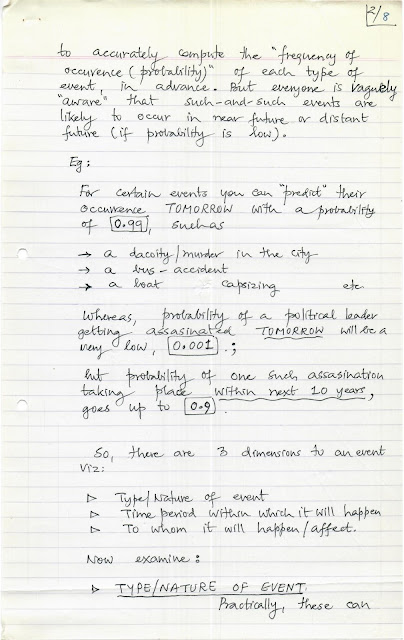 2/8
to accurately compute the "frequency of
occurence (probability)" of each type of
event, in advance. But everyone is vaguely
"aware" that such-and-such events are
likely to occur in near future or distant
future (if probability is low).
Eg:
For certain events you can "predict" their
occurrence TOMORROW with a probability
of 0.99, such as
→ a dacoity/murder in the city
→ a bus-accident
→ a boat capsizing etc
Whereas, probability of a political leader
getting assasinated TOMORROW will be a
very low, 0.001.;
but probability of one such assasination
taking place within next 10 years,
goes up to 0.9.
So, there are 3 dimensions to an event
Viz:
▷ Type/Nature of event
▷ Time period within which it will happen
▷ To whom it will happen/affect.
Now examine:
▷ TYPE/NATURE OF EVENT
Practically, these can